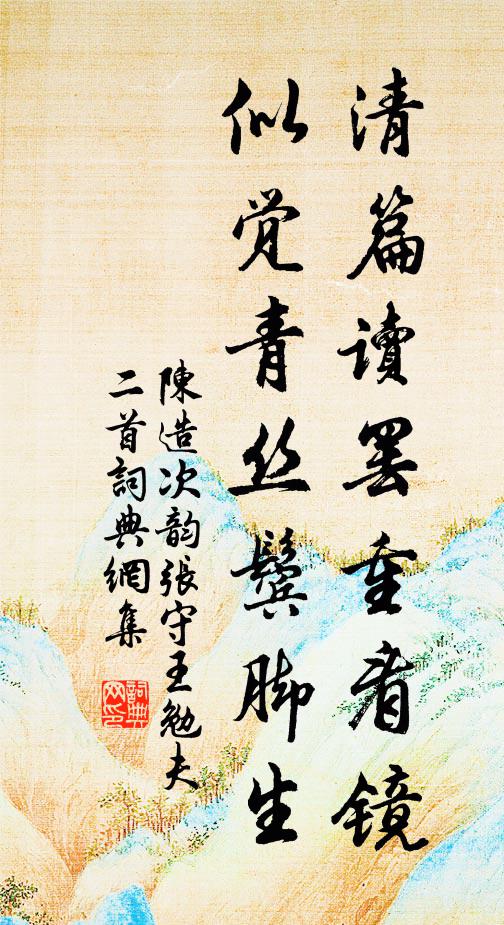 清篇讀罢重看镜
似觉青丝鬓脚生
陳造次韵張守王勉夫
二首詞典網集
詞典网印